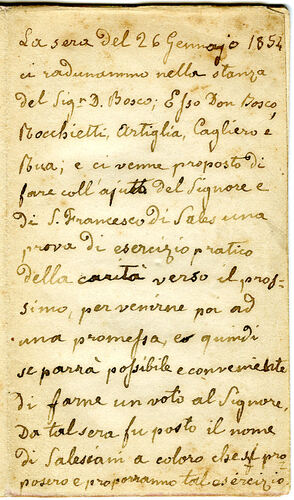 La sera del 26 Gennajo 1854
ci radunammo nella stanza
del Sigr D. Bosco; Esso Don Bosco,
Rocchietti, Artiglia, Cagliero e
Rua; e ci venne proposto di
fare coll'ajuto del Signore e
di S. Francesco di Sales una
prova di esercizio pratico
della carità verso il pros-
simo, per venirne poi ad
una promessa, e quindi
se parrà possibile e conveniente
di farne un voto al Signore.
Da tal sera fu posto il nome
di Salesiani a coloro che si pro-
posero e proporranno tal esercizio.